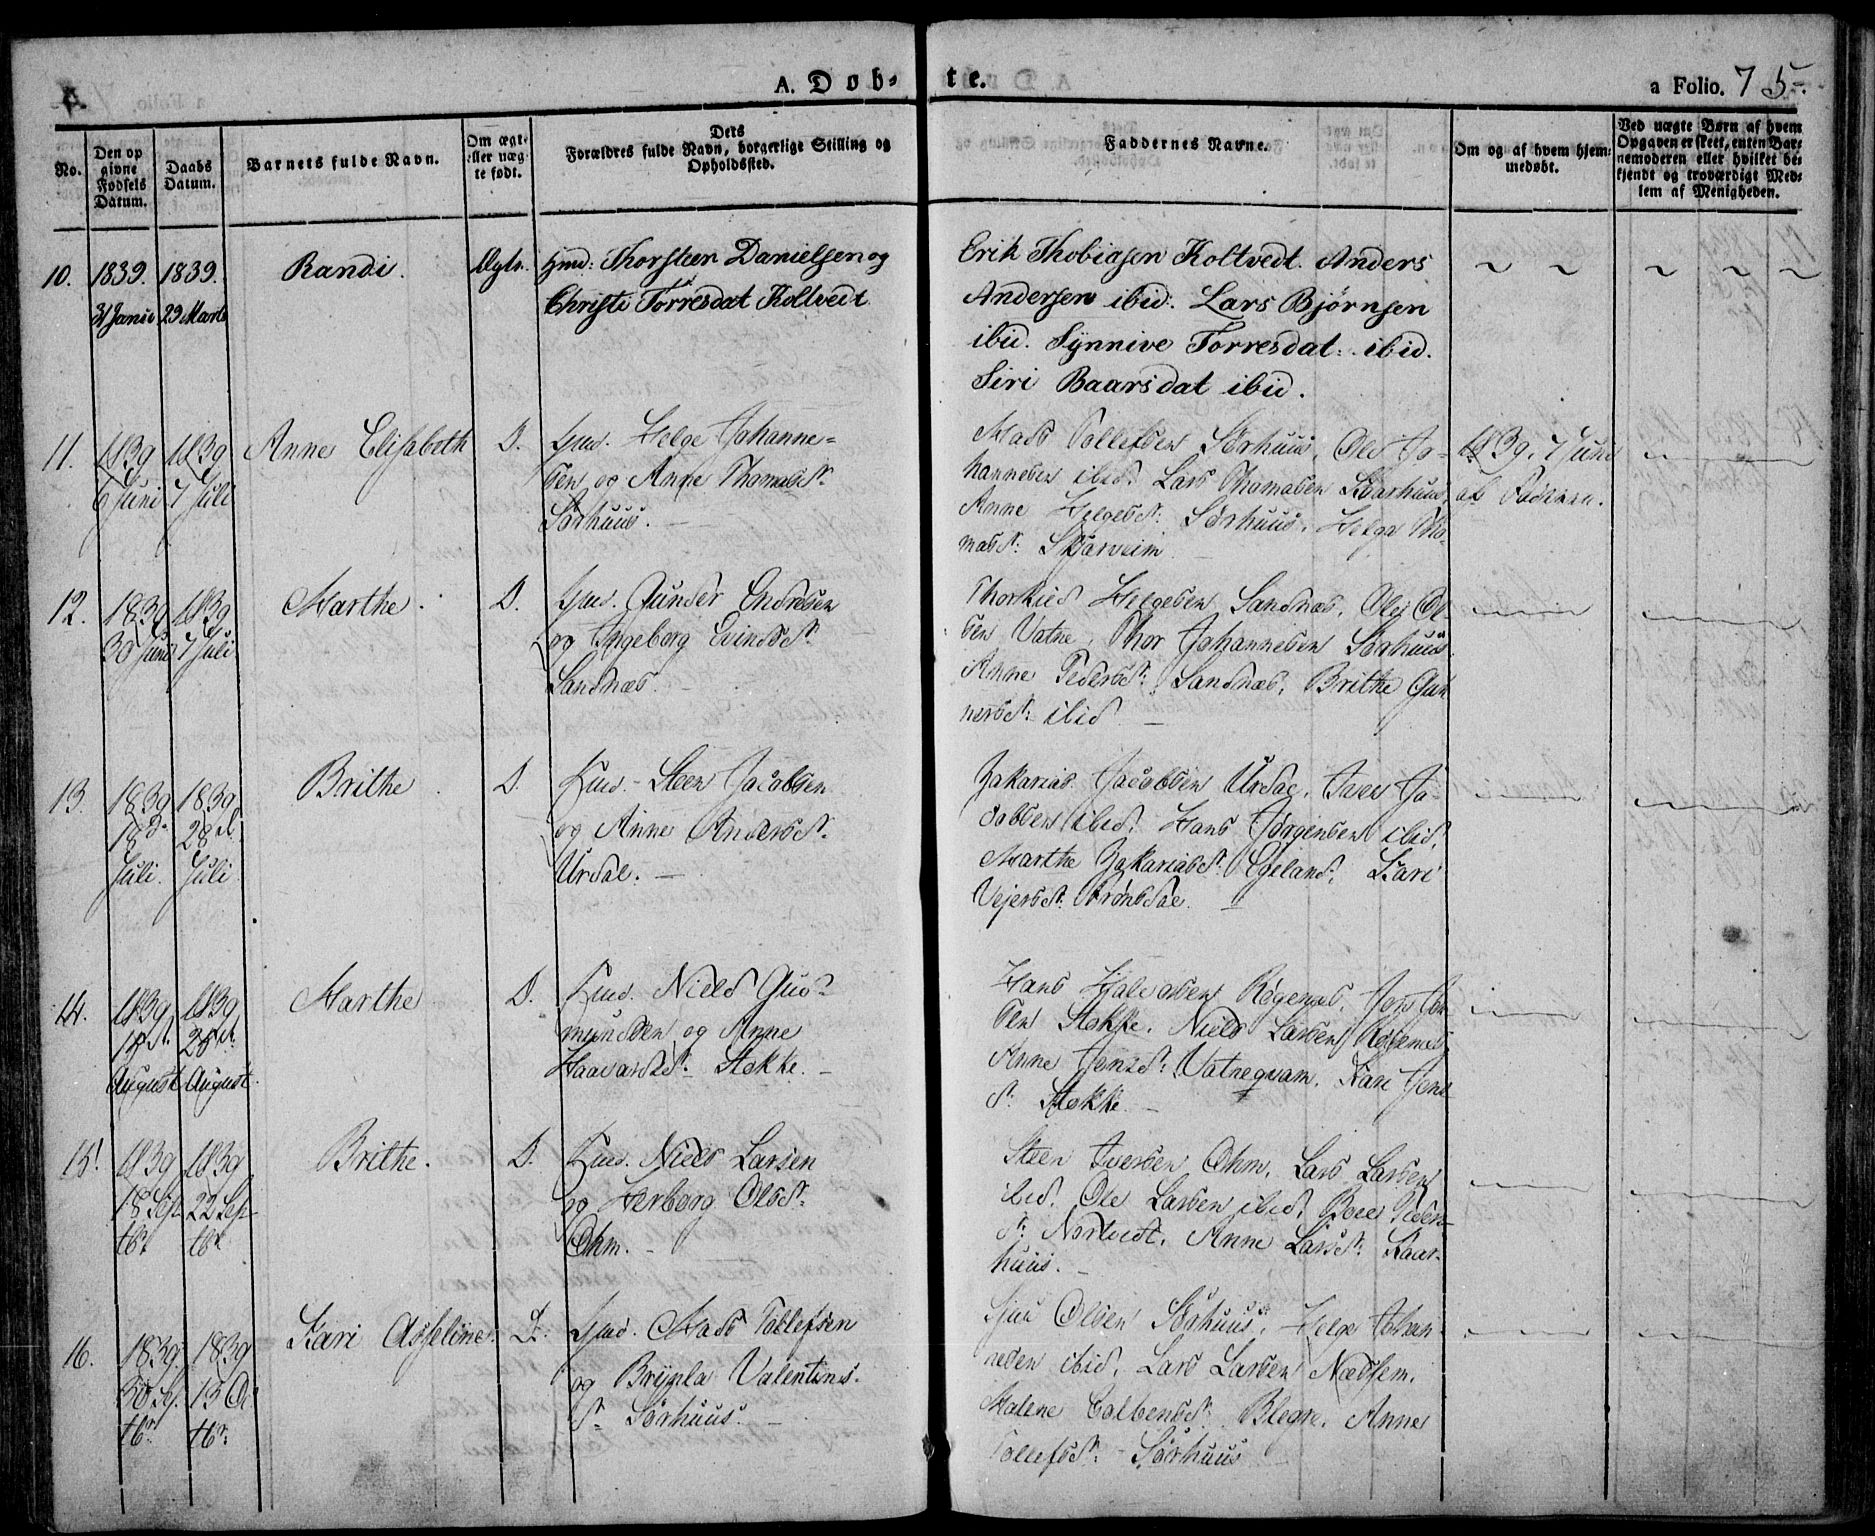 A. Døb-
te.
a Folio. 75.
No.
Den op
givne
Fødsels
Datum.
Daabs
Datum.
Barnets fulde Navn.
Om ægt-
eller uæg-
te født.
Dets
Forældres fulde Navn, borgerlige Stilling og
Opholdssted.
Faddernes Navne.
Om og af hvem hjem-
medøbt.
Ved uægte Børn af hvem
Opgaven er skeet, enten Bar-
nemoderen eller hvilket be-
kjendt og troværdigt Med-
lem af Menigheden.
10.
1839.
31 Janu
1839.
29 Marts
Randi.
Ægte.
Hmd: Thorsteen Danielsen og
Christi Torresdat Koltvedt
Erik Thobiasen Koltvedt. Anders
Andersen ibid. Lars Bjørnsen
ibid. Synnive Torresdat: ibid.
Siri Baarsdat ibid.
11.
1839
6 Juni
1839
7 Juli
Anne Elisabeth
D.
Gmd. Helge Johanne-
sen og Anne Thomasd.
Sørhuus.
Mads Tollefsen Sørhuus, Ole Jo-
hannesen ibid. Lars Thomasen Skaarhuus,
Anne Helgesd: Sørhuus. Helga Tho-
masd: Skjærveim
1839. 7 Juni
af Faderen.
12.
1839
30 Juni
1839
7 Juli
Marthe.
D.
Gmd. Gunder Endresen
og Ingeborg Evindsd.
Sandnæs.
Thorkied Helgesen Sandnæs, Olej Ol-
sen Vatne, Thor Johannesen Sørhuus.
Anne Pedersd: Sandnæs, Brithe Gun
nersd: ibid
13.
1839
18 d.
Juli.
1839
28 d.
Juli
Brithe
D.
Hmd. Steen Jacobsen
og Anne Andersd.
Urdal.
Zakarias Jacobsen Urdal, Iver Ja-
cobsen ibid. Hans Jørgensen ibid,
Marthe Zakariasd: Egeland, Kari
Vejersd: Brønsdal.
14.
1839
August
1839
August.
Marthe
D.
Hmd. Niels Gud-
mundsen og Anne
Haavardsd. Stokke.
Hans Halvorsen Røgenæs, Jens Jen
sen Stokke. Niels Larsen
Anne Jensd: Vatneqvam. Kari Jens
d: Stokke
15.
1839
18 Sep
tbr
1839
22 Sep-
tbr
Brithe.
D.
Hmd. Niels Larsen
og Herborg Olsd.
Ohm.
Steen Iversen Ohm. Lars Larsen
ibid. Ole Larsen ibid. Peder-
d: Nortvedt. Anne Larsd: Skaar-
huus.
16.
1839
30 Sep.
tbr.
1839
13 Oc
tbr:
Kari Asseline.
D.
Gmd. Mads Tollefsen
og Brynla Valentins-
d. Sørhuus.
Siur Olsen Sørhuus. Helge Johan-
nesen ibid. Lars Larsen Nædsem.
Malene Colbensd: Blegre. Anne
Tollefsd: Sørhuus